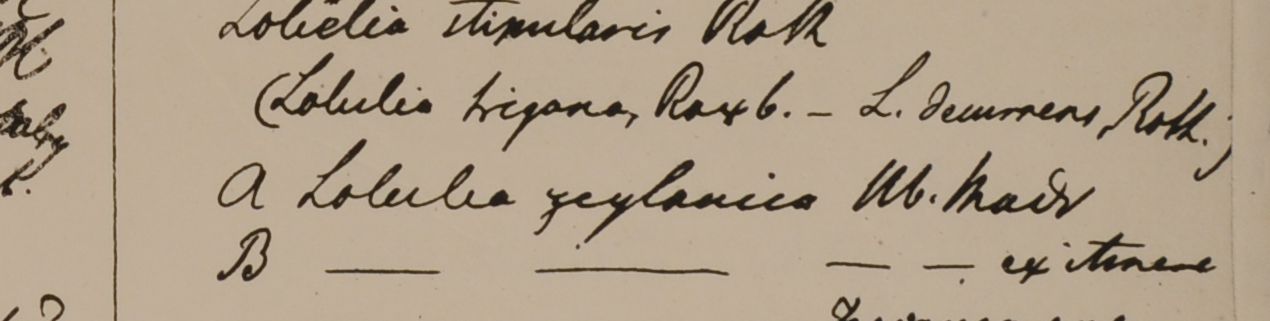 Lobelia stipularis Roth
(Lobelia trigona, Roxb. – L. decurrens, Roth.)
A Lobelia zeylanica Hb. Madr
B — — — — ex itinere